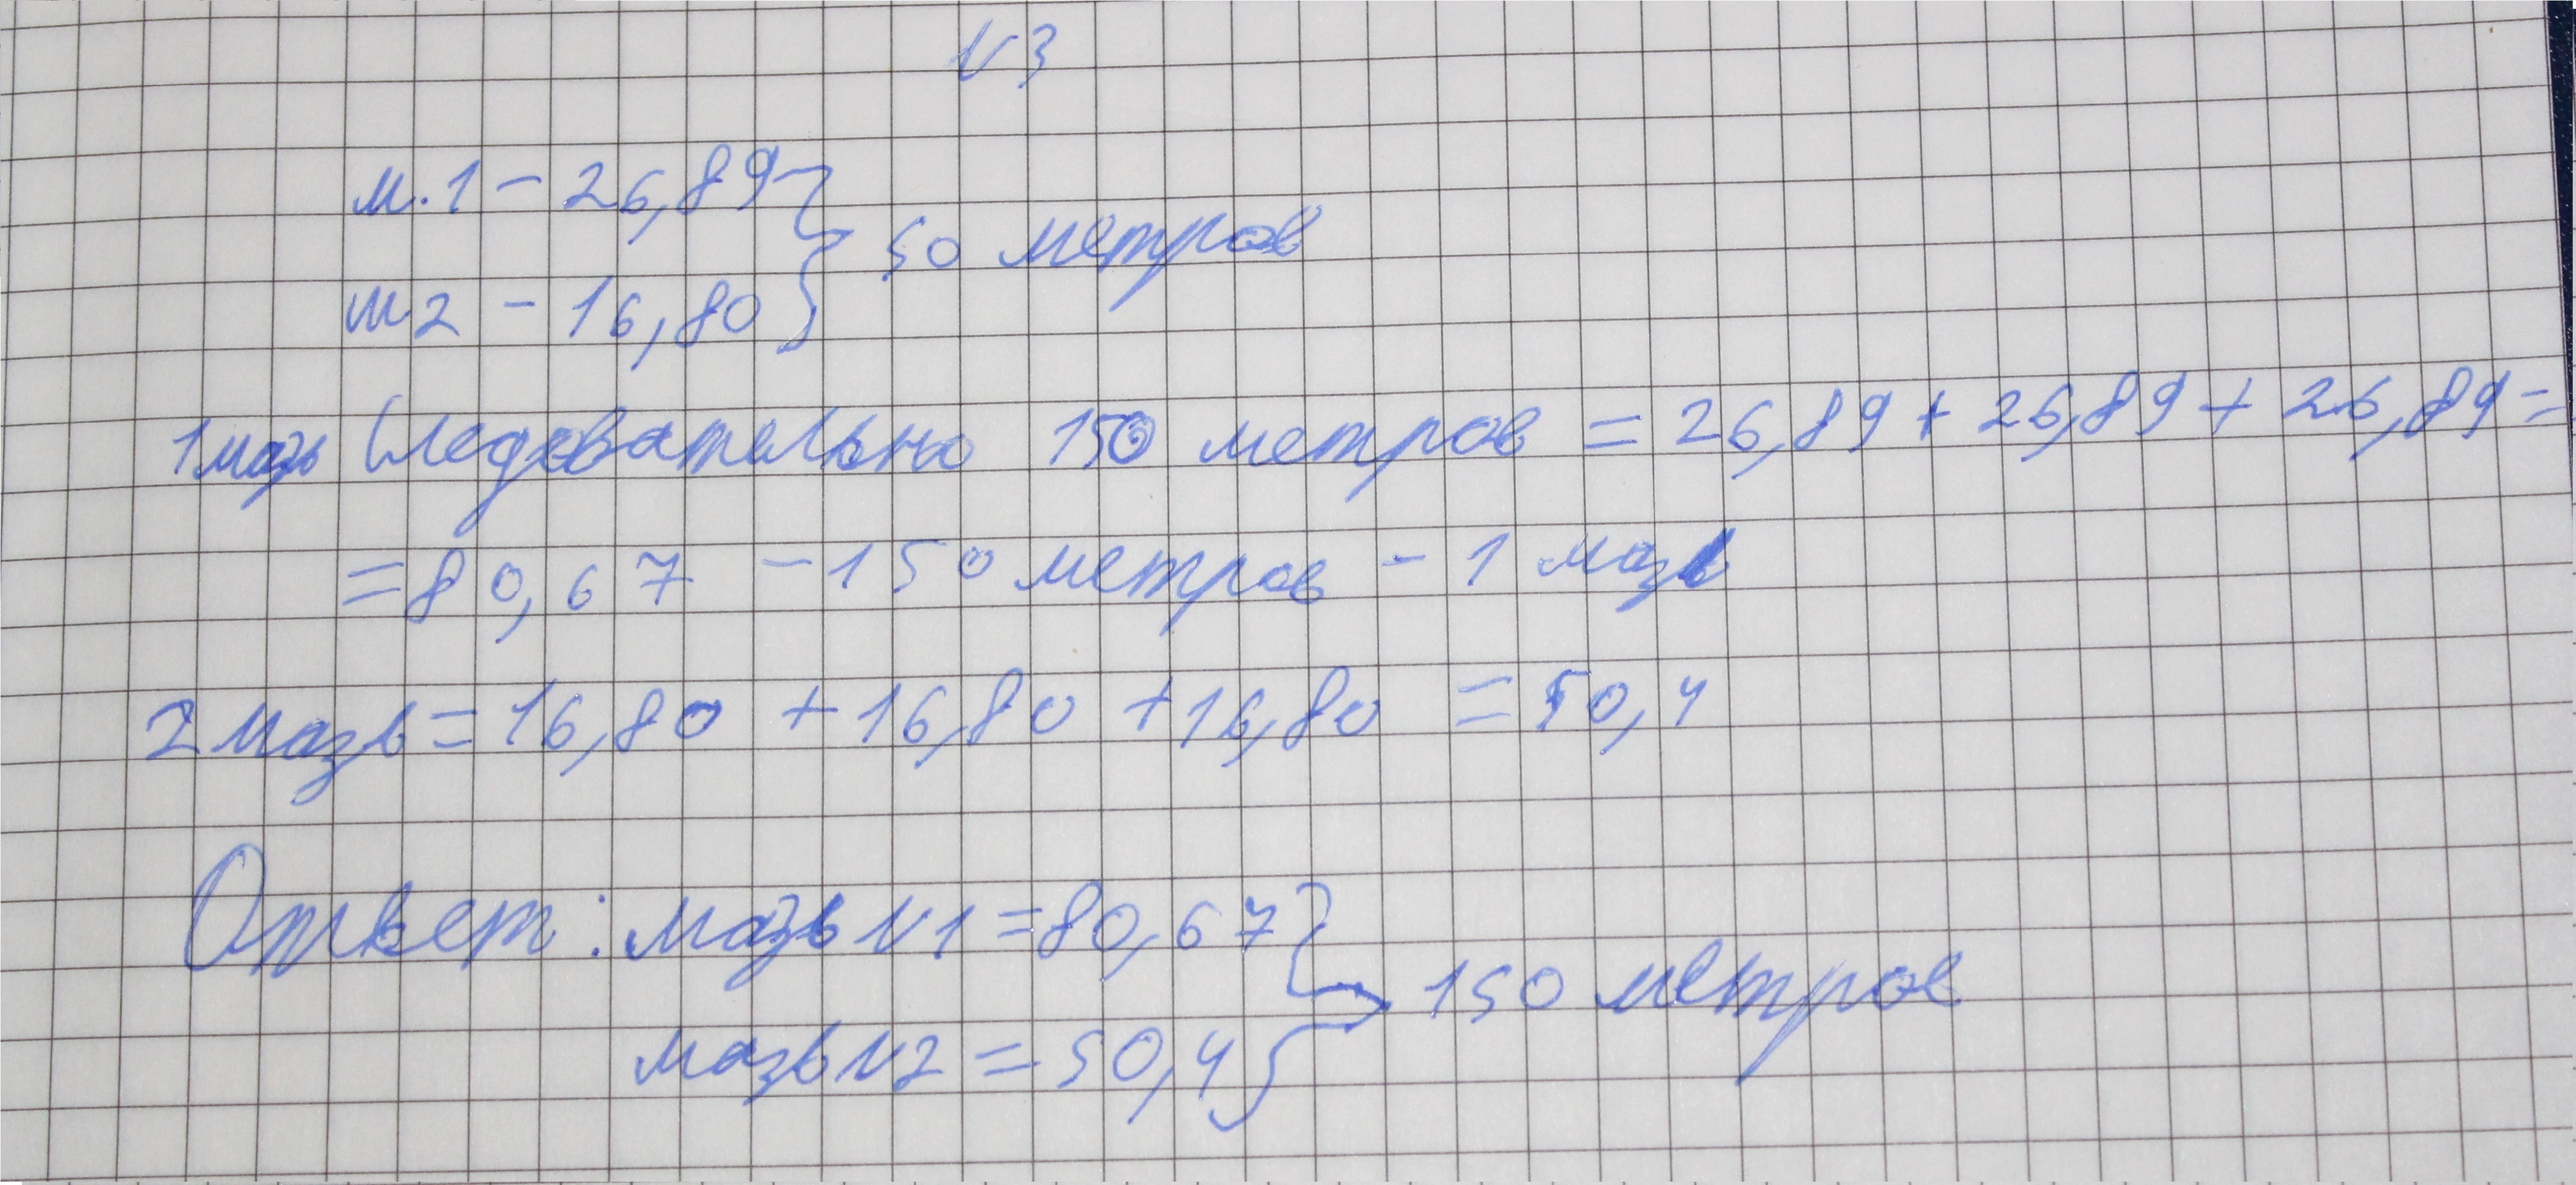 N3
м.1 - 26,89
50 метров
м2 - 16,80
1 мазь Следовательно 150 метров = 26,89 + 26,89 + 26,89 =
= 80,67 - 150 метров - 1 мазь
2 мазь = 16,80 + 16,80 + 16,80 = 50,4
Ответ: мазь N1 = 80,67
150 метров
мазь N2 = 50,4